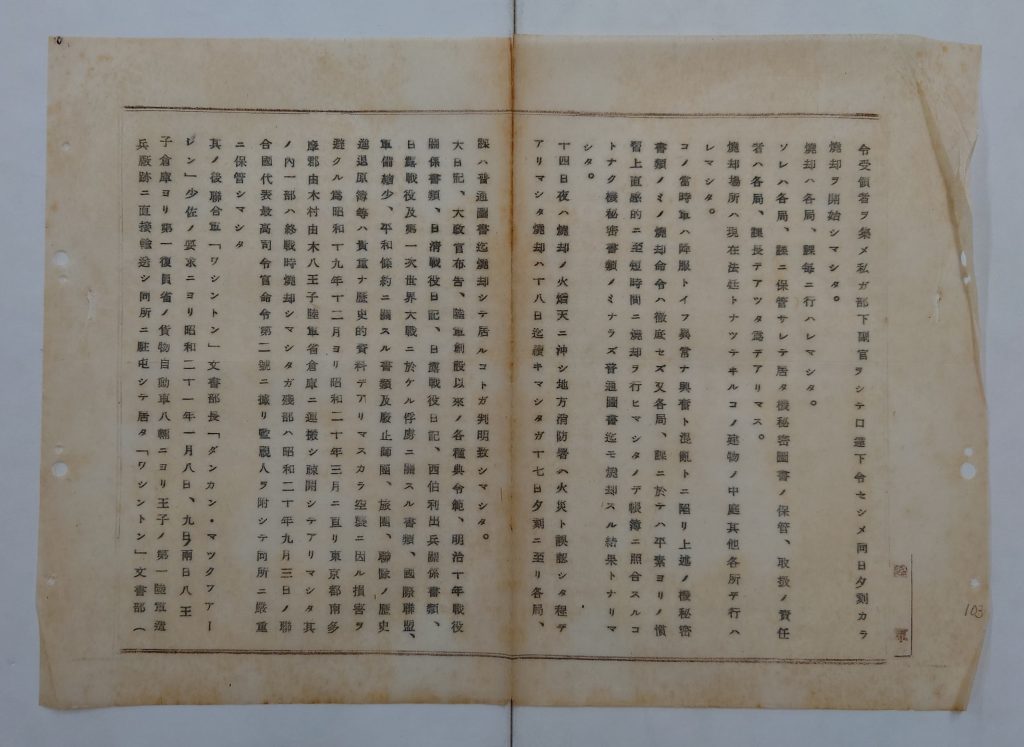 令受領者ヲ集メ私ガ部下副官ヲシテ口達下令セシメ同日夕刻カラ
燒却ヲ開始シマシタ。
燒却ハ各局、課毎ニ行ハレマシタ。
ソレハ各局、課ニ保管サレテ居タ機秘密圖書ノ保管、取扱ノ責任
者ハ各局、課長デアツタ爲デアリマス。
燒却場所ハ現在法廷トナツテヰルコノ建物ノ中庭其他各所デ行ハ
レマシタ。
コノ當時軍ハ降服トイフ異常ナ興奮ト混亂トニ陷リ上述ノ機秘密
書類ノミノ燒却命令ハ徹底セズ又各局、課ニ於テハ平素ヨリノ慣
習上直感的ニ至短時間ニ燒却ヲ行ヒマシタノデ帳簿ニ照合スルコ
トナク機秘密書類ノミナラズ普通圖書迄モ燒却スル結果トナリマ
シタ。
十四日夜ハ燒却ノ火焔天ニ沖シ地方消防署ハ火災ト誤認シタ程デ
アリマシタ燒却ハ十八日迄續キマシタガ十七日夕刻ニ至リ各局、
課ハ普通圖書迄燒却シテ居ルコトガ判明致シマシタ。
大日記、大政官布告、陸軍創設以來ノ各種典令範、明治十年戰役
關係書類、日淸戰役日記、日露戰役日記、西伯利出兵關係書類、
日露戰役及第一次世界大戰ニ於ケル俘虜ニ關スル書類、國際聯盟、
軍備縮少、平和條約ニ關スル書類及廢止師團、旅團、聯隊ノ歷史
進退原簿等ハ貴重ナ歷史的資料デアリマスカラ空襲ニ因ル損害ヲ
避クル爲昭和十九年十二月ヨリ昭和二十年三月ニ亘リ東京都南多
摩郡由木村由木八王子陸軍省倉庫ニ運搬シ疎開シテアリマシタ其
ノ內一部ハ終戰時燒却シマシタガ殘部ハ昭和二十年九月三日ノ聯
合國代表最高司令官命令第二號ニ據リ監視人ヲ附シテ同所ニ嚴重
ニ保管シマシタ
其ノ後聯合軍「ワシントン」文書部長「ダンカン・マツクフアー
レン」少佐ノ要求ニヨリ昭和二十一年一月八日、九日ノ兩日八王
子倉庫ヨリ第一復員省ノ貨物自動車八輛ニヨリ王子ノ第一陸軍造
兵廠跡ニ直接輸送シ同所ニ駐屯シテ居タ「ワシントン」文書部（
陸軍
103